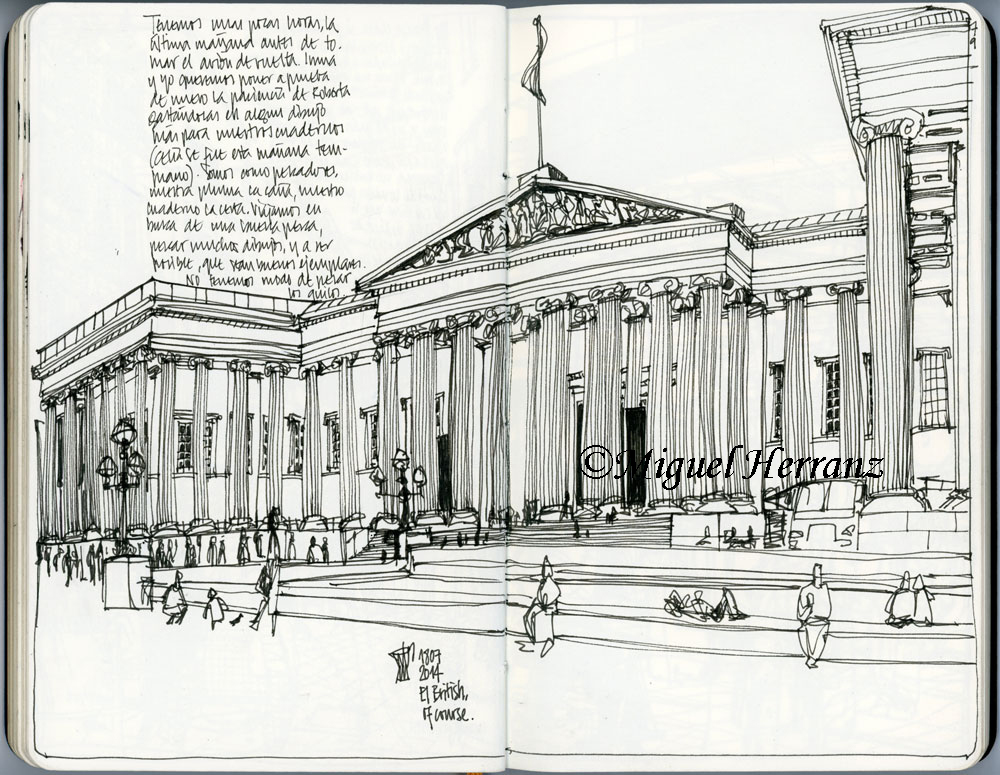 Tenemos unas pocas horas, la
última mañana antes de to-
mar el avión de vuelta. Inma
y yo queremos poner a prueba
de nuevo la paciencia de Roberta
gastándolas en algún dibujo
más para nuestros cuadernos
(Celia se fue esta mañana tem-
prano). Somos como pescadores,
nuestra pluma la caña, nuestro
cuaderno la cesta. Viajamos en
busca de una buena pesca,
pescar muchos dibujos, y a ser
posible, que sean buenos ejemplares.
No tenemos modo de pesar
los quilos.
©Miguel Herranz
1807
2014
El British,
of course.